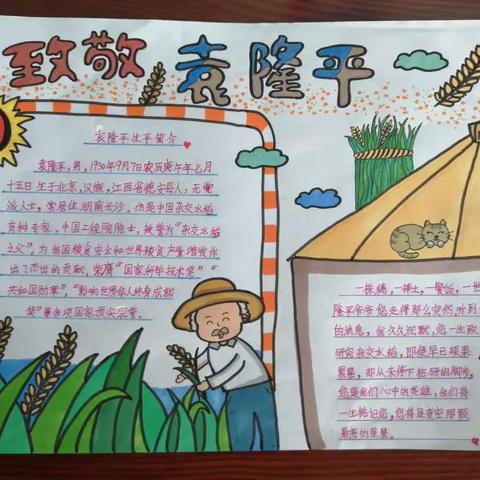 致敬 袁隆平
袁隆平生平简介
袁隆平,男,1930年9月7日农历庚午年七月
十五日生于北京,汉族,江西省德安县人,无党
派人士,常居住湖南长沙,他是中国杂交水稻
育种专家,中国工程院院士,被誉为“杂交水稻
之父”。为我国粮食安全和世界粮食产量增收作
出了杰出的贡献,荣膺“国家科学技术奖”“
共和国勋章”,“影响世界华人终身成就
奖”等多项国家顶尖荣誉
一株穗,一捧土,一餐饭,一世
隆平爷爷您走得那么突然,听到
的消息,我久久沉默,您一生致
研究杂交水稻,即便早日硕果
累累,却从未停下钻研的脚步,
您是我们心中的英雄,我们将
一生铭记您,您将是夜空那颗
最亮的星星。